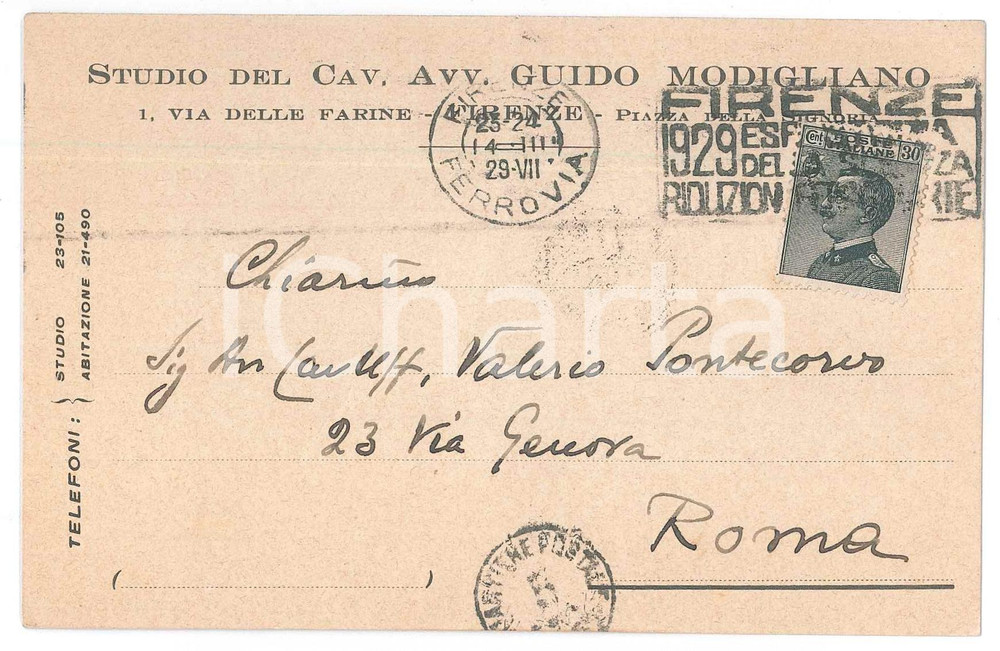 STUDIO DEL CAV. AVV. GUIDO MODIGLIANO
1, VIA DELLE FARINE - FIRENZE - PIAZZA DELLA SIGNORIA
FIRENZE
23-24
14-III
29-VII
FERROVIA
FIRENZE
1929
DEL
RIDUZION
Cent POSTE 30
ITALIANE
TELEFONI: STUDIO 23-105
ABITAZIONE 21-490
Chiarmo
Sig Avv Cav Uff, Valerio Pontecorvo
23 Via Genova
Roma
( )
iCharta